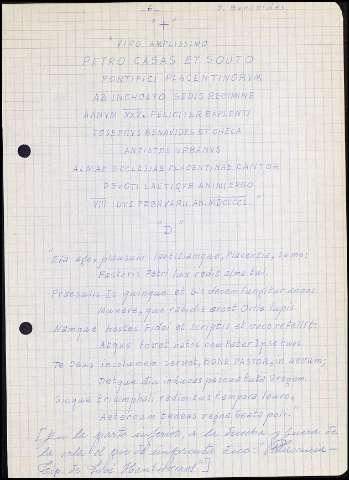 -6- J. Benavides
"+"
"VIRO AMPLISSIMO
PETRO CASAS ET SOUTO
PONTIFICI PLACENTINORUM
AB INCHOATO SEDIS REGIMINE
ANNUM XXV. FELICITER EXPLENTI
JOSEPHUS BENAVIDES ET CHECA
ANTISTES URBANUS
ALMAE ECCLESIAE PLACENTINAE CANTOR
DEVOTI LAETIQUE ANIMI ERGO
VIII IDUS FEBRUARII AN. MDCCCCI."
"D"
"Eia age, plausum laetitiamque, Placentia, sume;
Pastoris Petri lux redit alma tui.
Praesulis Is quinque et bis decem fungitur annos
Munere, que rabidis arcet Ovile lupis.
Namque hostes Fidei et scriptis et voce refellit:
Atque fovet natos ceu Pater Ipse suos.
Te Deus incolumem servet, BONE PASTOR, in aevum;
Detque diu induas pascere tuta Gregem.
Sicque triumphali redimitus tempora lauro,
Aeternum tendas regna beata poli."
[En la parte inferior, a la derecha y fuera de
la orla el pie de imprenta dice:
Tip. de José Hontiveros."]